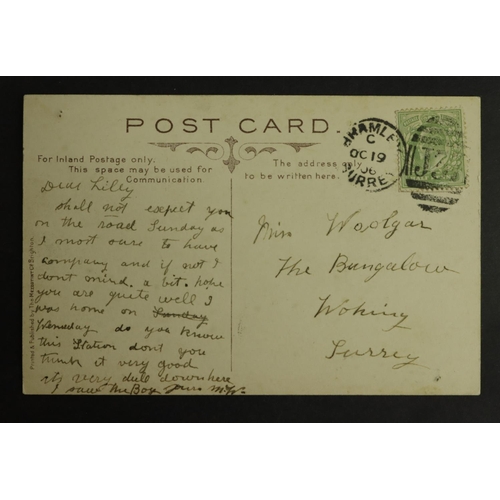 POST CARD.
For Inland Postage only.
This space may be used for
Communication.
The address only
to be written here.
BRAMLEY
C
OC 19
06
SURREY
Dear Lilly
shall not expect you
on the road Sunday as
I most ours to have
company and if not I
dont mind. a bit. hope
you are quite well I
was home on Sunday
Wensday do you know
this Station dont you
think it very good
its very dull down here
I saw the Box yours M.W.
Miss Woolgar
The Bungalow
Woking
Surrey
Printed & Published by The Mezzotint Co Brighton.